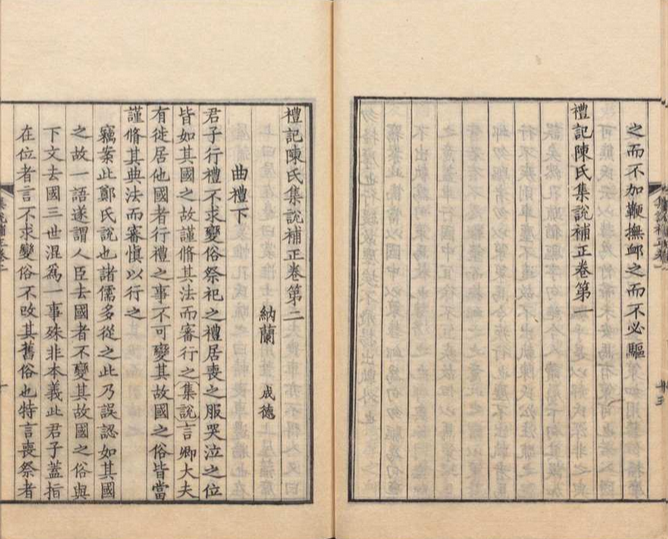 之而不加鞭撫䘏之而不必驅
禮記陳氏集說補正卷第一
禮記陳氏集說補正卷第二
納蘭 成德
曲禮下
君子行禮不求變俗祭祀之禮居喪之服哭泣之位
皆如其國之故謹脩其法而審行之集說言卿大夫
有徙居他國者行禮之事不可變其故國之俗皆當
謹脩其典法而審慎以行之
竊案此鄭氏說也諸儒多從之此乃誤認如其國
之故一語遂謂人臣去國者不變其故國之俗與
下文去國三世混為一事殊非本義此君子蓋指
在位者言不求變俗不改其舊俗也特言喪祭者